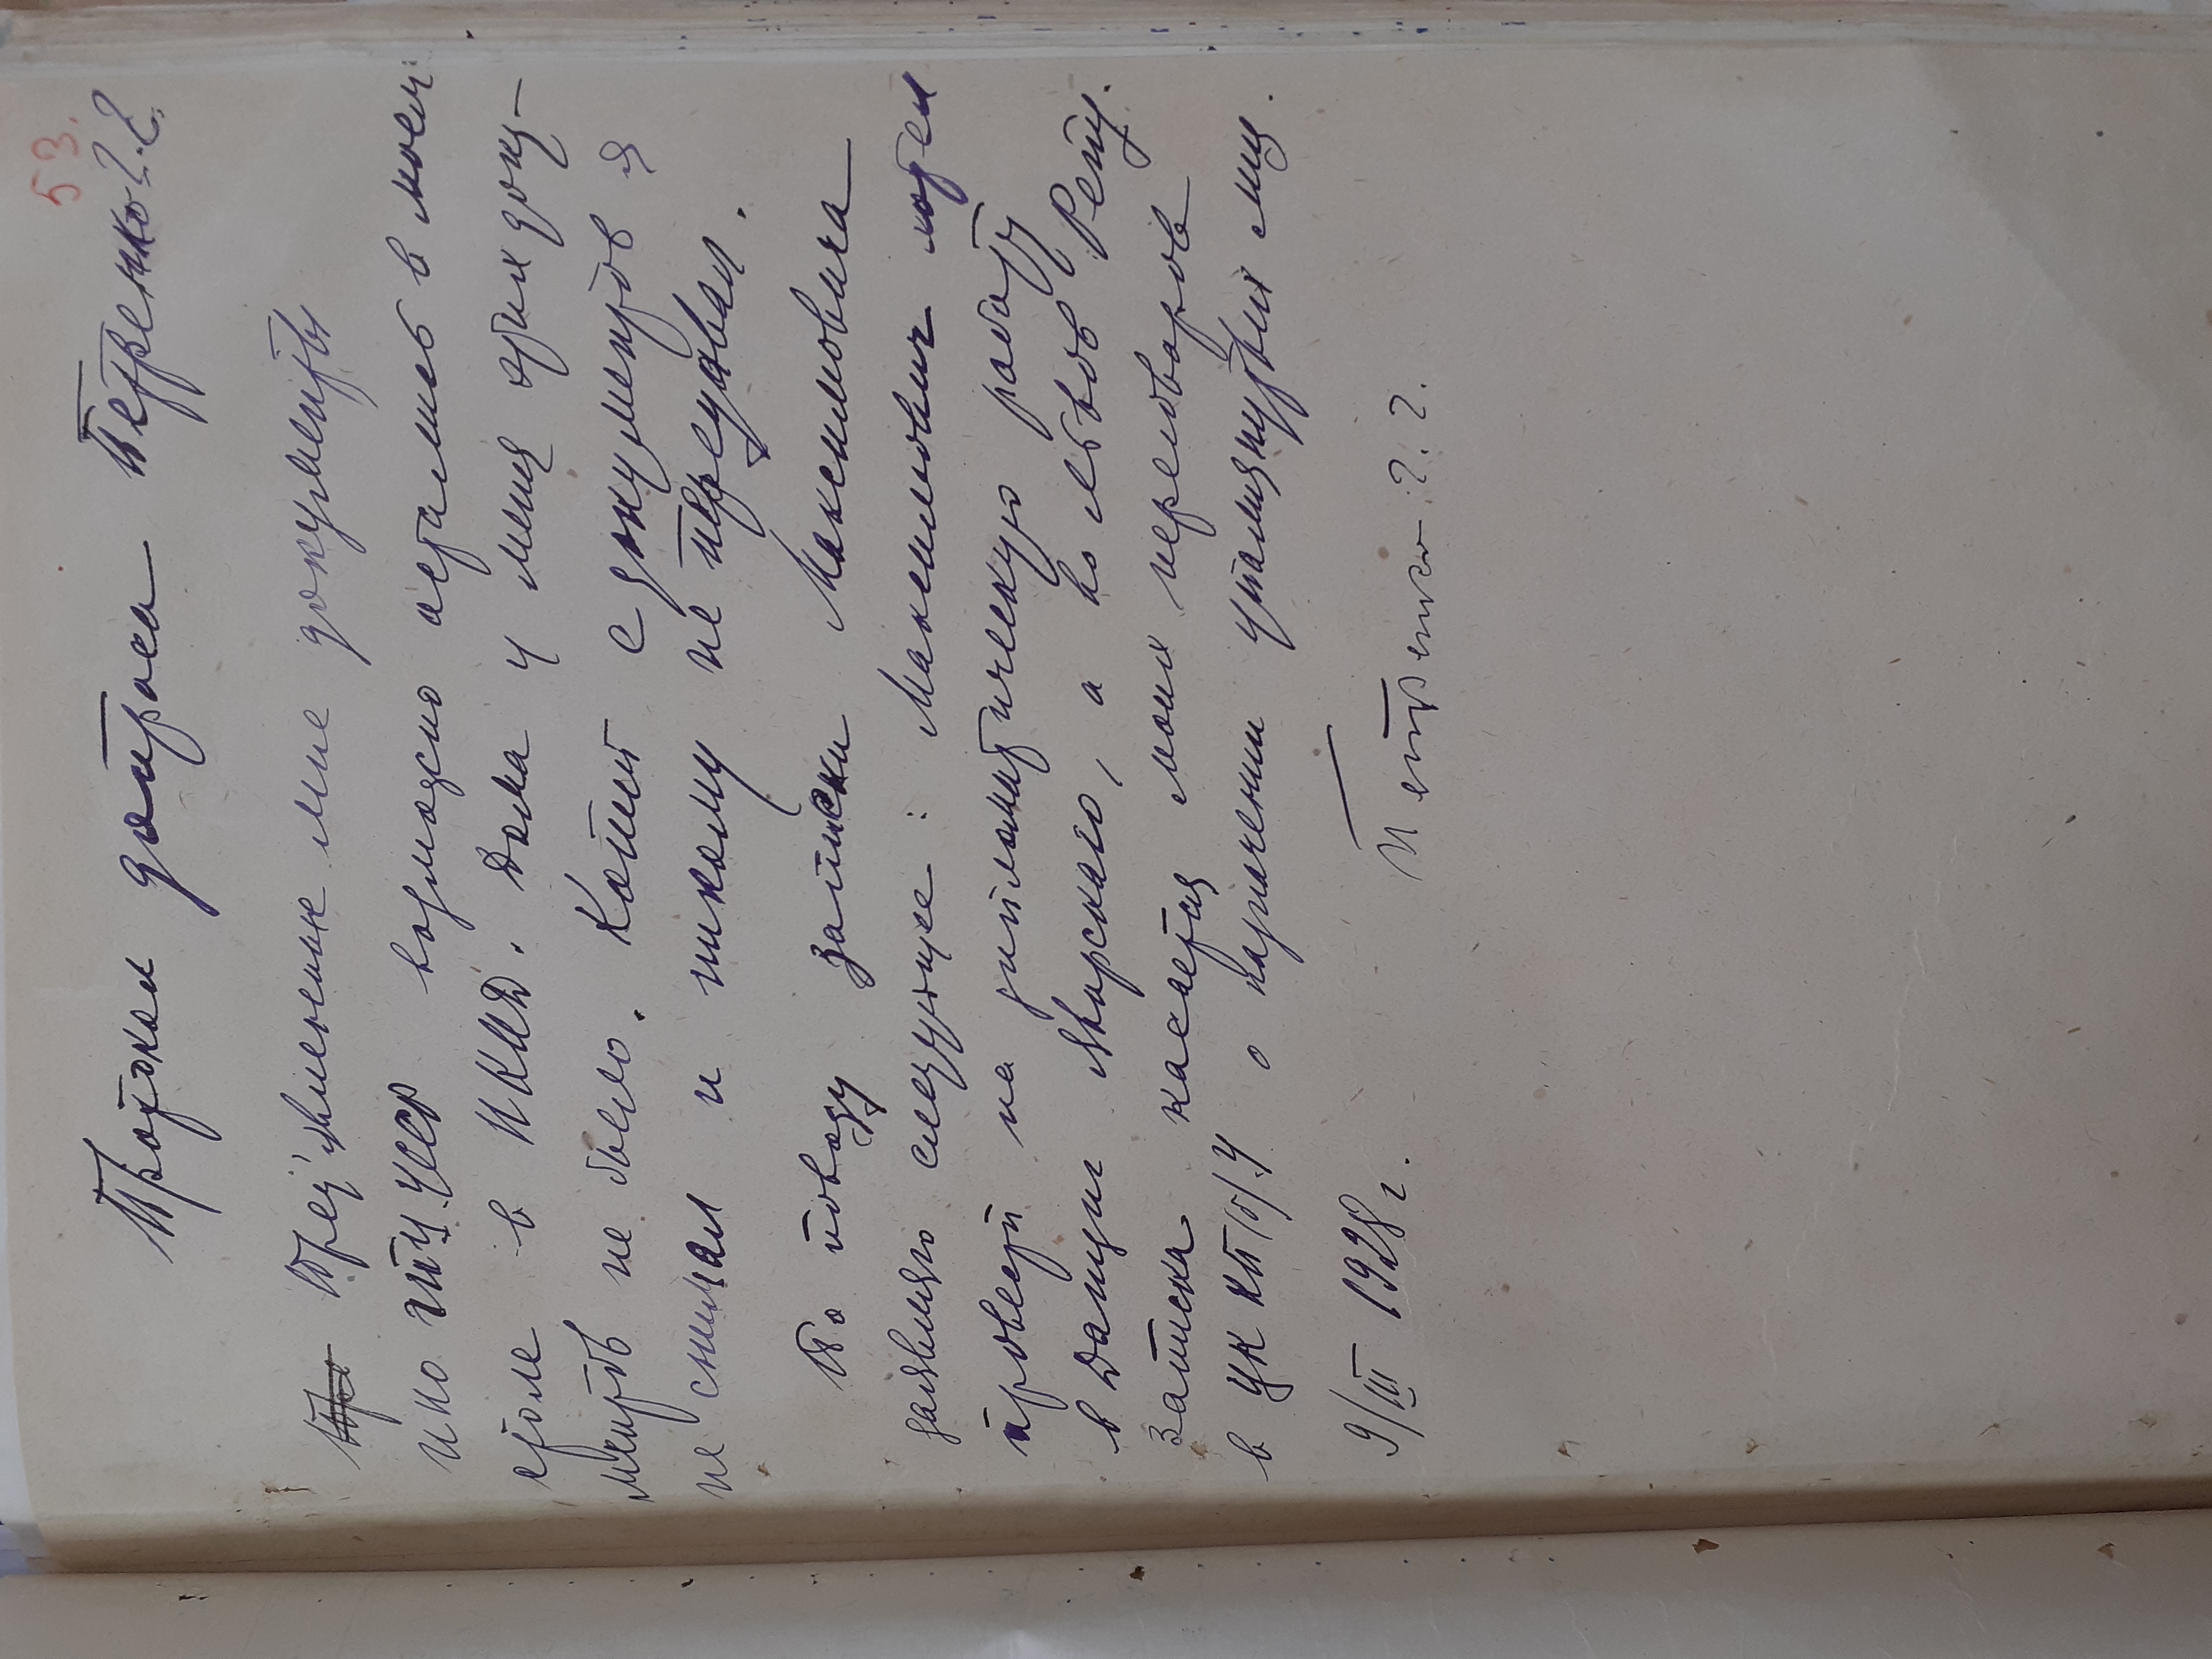 53.
Протокол допроса Петренко Г.Г.
Пред'явленные мне документы
ино ГПУ УССР возможно остались в моем
столе в НКИД. Дома у меня этих доку-
ментов не было. Копит с документов я
не снимал и никому не передавал.
По поводу записки Максимовича
заявляю следующее: Максимович
проведен на дипломатическую работу
в Данциг Шварского, а во Львов Решу.
Записка касается моих переговоров
в ЦК КП(б)У о назначении упомянутых лиц.
9/III 1928 г. Петренко Г.Г.